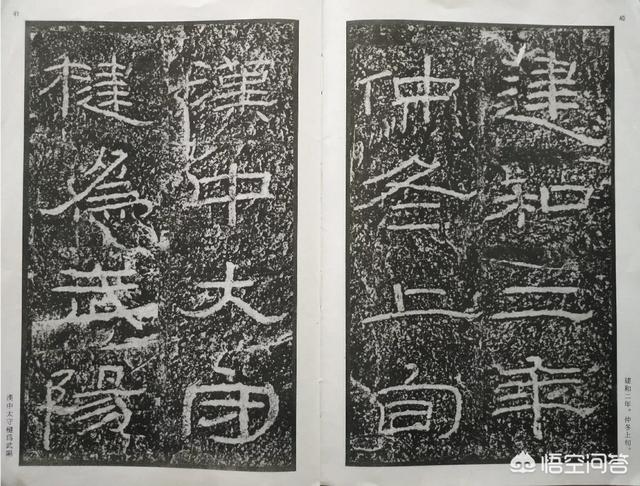 40
建和二年
仲冬上旬
建和二年。仲冬上旬。
41
漢中大守
楗為武陽
漢中太守楗爲武陽
悟空问答